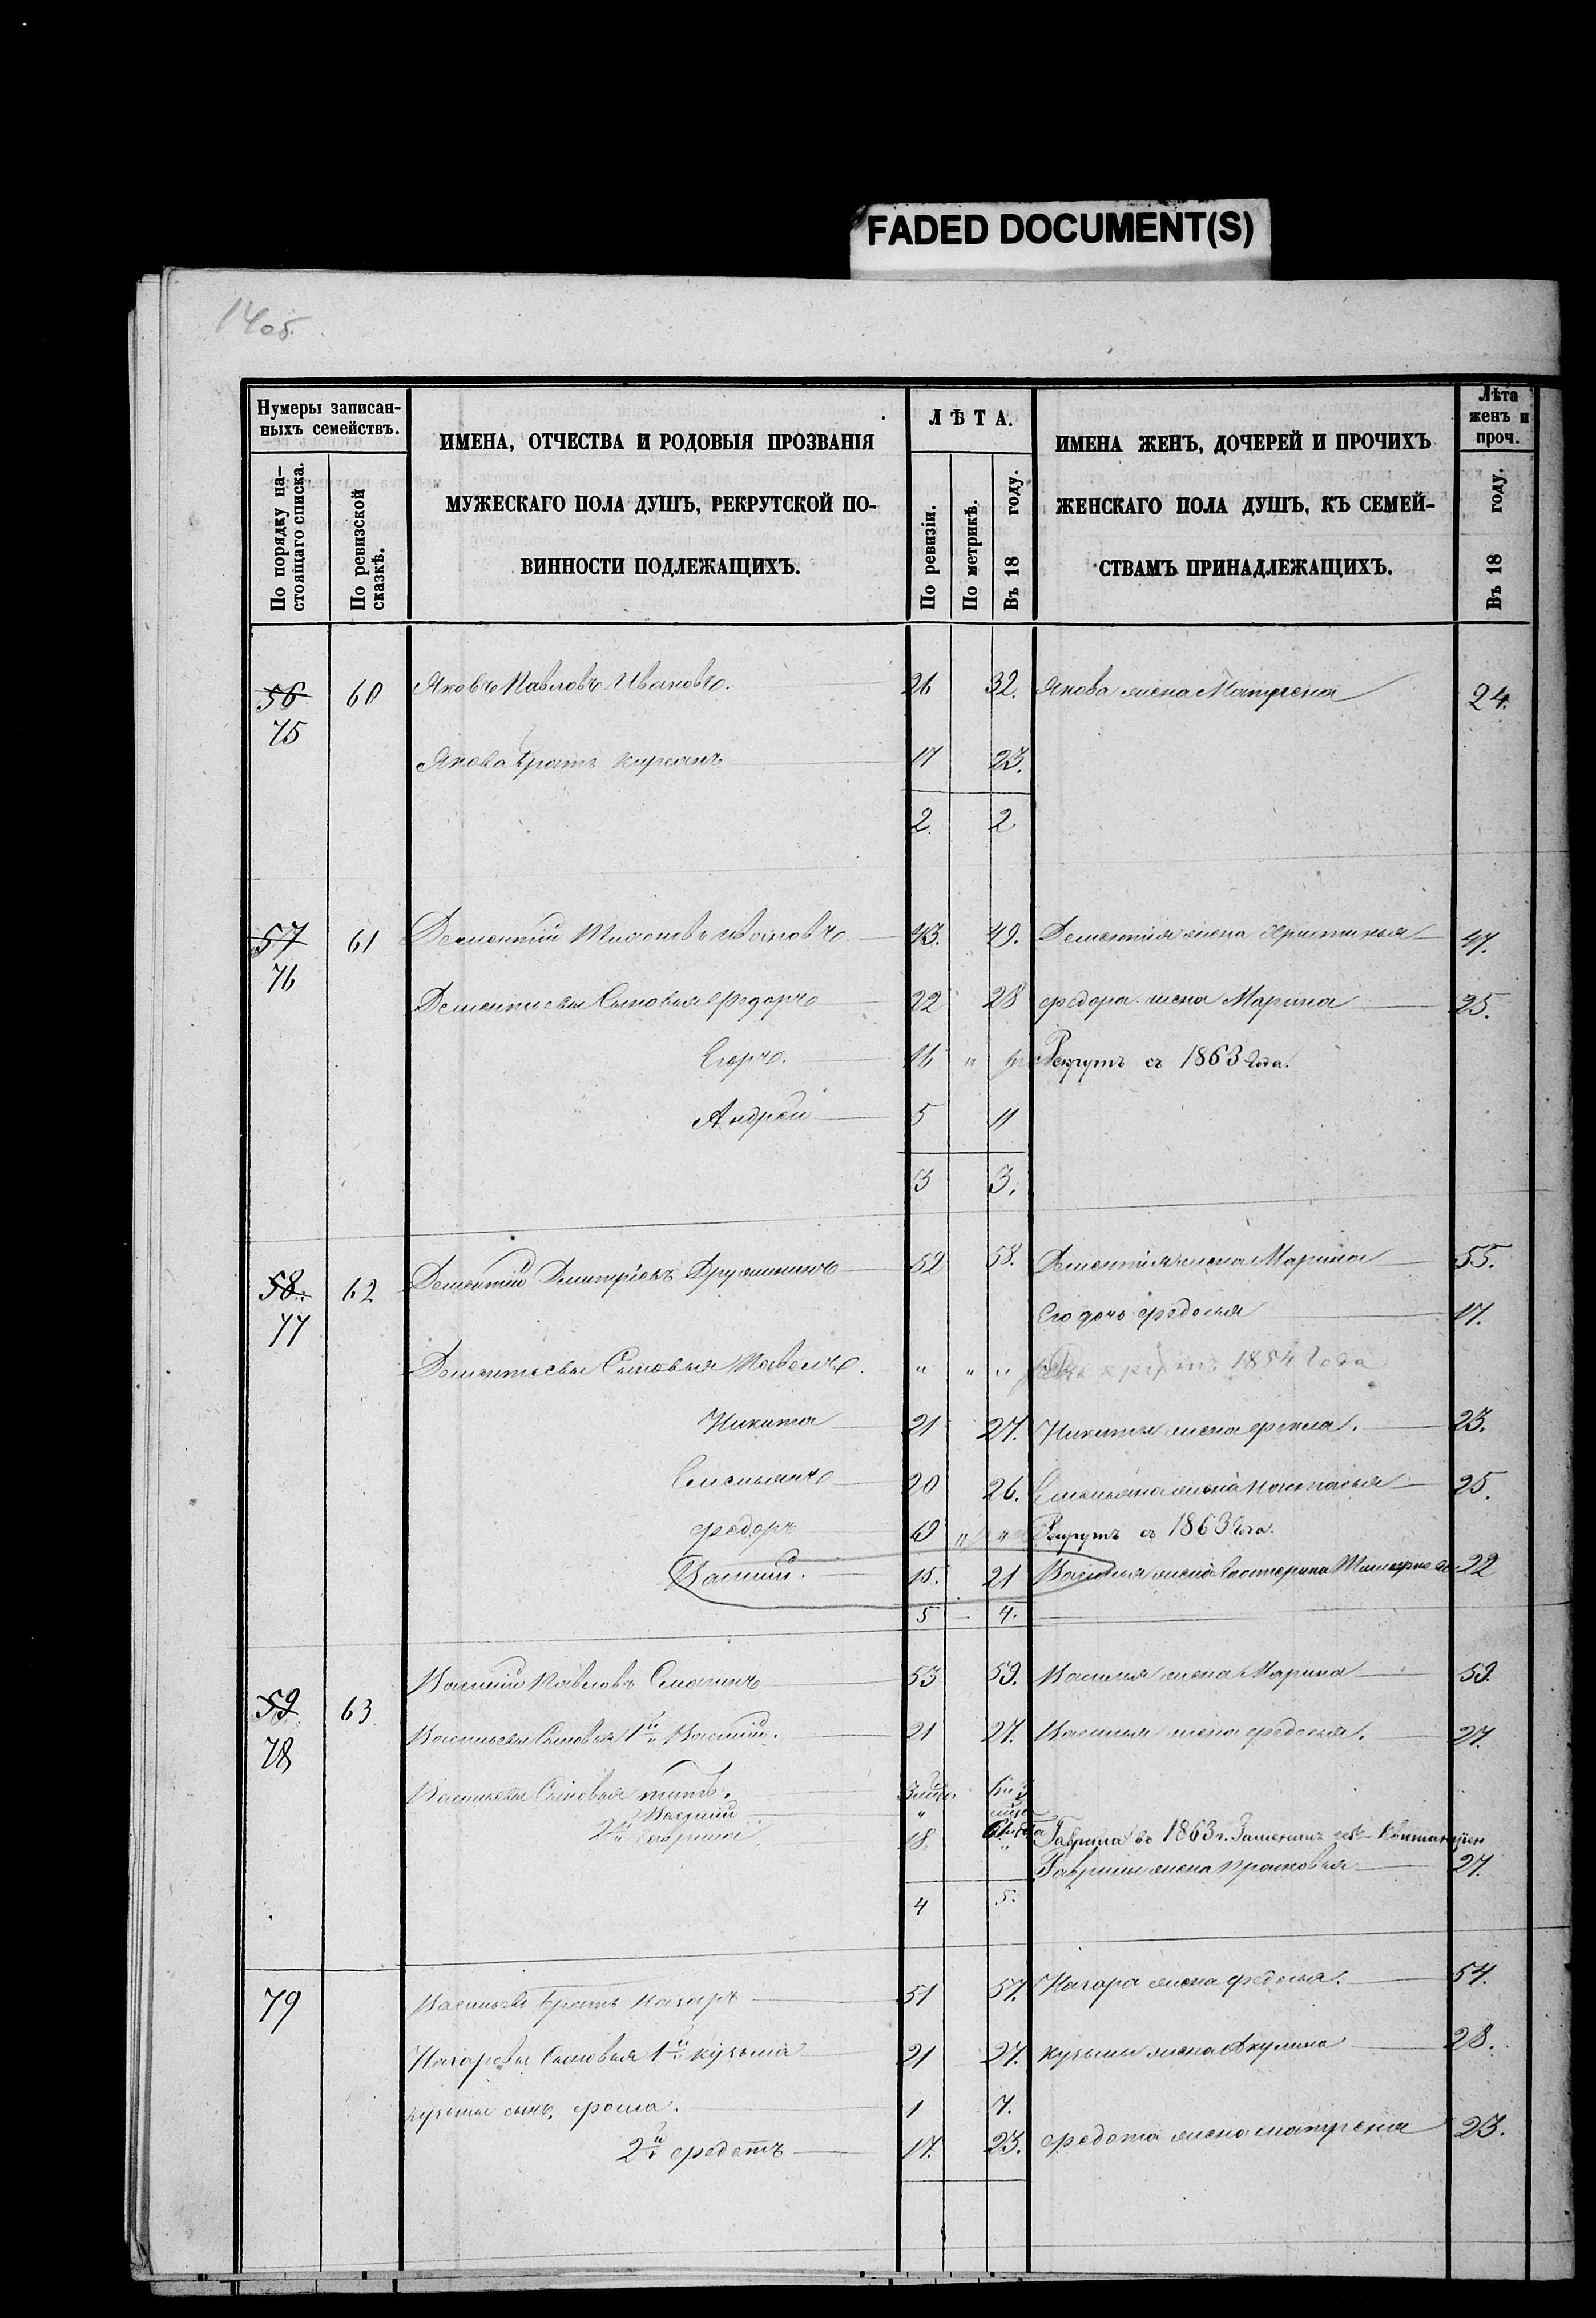 FADED DOCUMENT(S)
14об.
Нумеры записан-
ныхъ семействъ.
По порядку на-
стоящаго списка.
По ревизской
сказкѣ.
ИМЕНА, ОТЧЕСТВА И РОДОВЫЯ ПРОЗВАНІЯ
МУЖЕСКАГО ПОЛА ДУШЪ, РЕКРУТСКОЙ ПО-
ВИННОСТИ ПОДЛЕЖАЩИХЪ.
ЛѢТА.
По ревизіи.
По метрикѣ.
Въ 18 году.
ИМЕНА ЖЕНЪ, ДОЧЕРЕЙ И ПРОЧИХЪ
ЖЕНСКАГО ПОЛА ДУШЪ, КЪ СЕМЕЙ-
СТВАМЪ ПРИНАДЛЕЖАЩИХЪ.
Лѣта
женъ и
проч.
Въ 18 году.
56 60 Яковъ Павловъ Ивановъ. 26 32. Якова жена Матрена 24.
75
Якова братъ 17 23.
2. 2
57 61 Дементий ивановъ 43. 49. Дементия жена 47.
76
Дементьевы Сыновья федоръ 22 28 федора жена Марина 25.
Егоръ. 16 " Рекрутъ съ 1863 Года.
Андрей 5 11
3 3.
58. 62 Дементий Дмитріевъ Дружининъ 52 58. Дементія жена Марина 55.
77
Его дочь федосья 17.
Дементьевы Сыновья Павелъ. " " " 1854 Года
Никита 21 27. Никиты жена фекла. 23.
Емельянъ 20 26. Емельяна жена настасья 25.
федоръ " " Рекрутъ съ 1863 Года.
Василий. 15. 21 Василья жена Катерина 22
5 4.
59 63 Василий Павловъ 53 59. Василья жена Марина 59.
78
Васильевы Сыновья 1й Василий. 21 27. Василья жена федосья. 27.
Васильевы Сыновья титъ.
Василий "
2й Гаврила 18 " Гаврила въ 1863 г.
Гаврилы жена 27.
4 5.
79 Васильевъ братъ назаръ 51 57. Назара жена федосья. 54.
Назаровы Сыновья 1й кузьма 21 27. кузьмы жена Акулина 28.
кузьмы сынъ, фома. 1 7.
2й федотъ 17. 23. федота жена матрена 23.